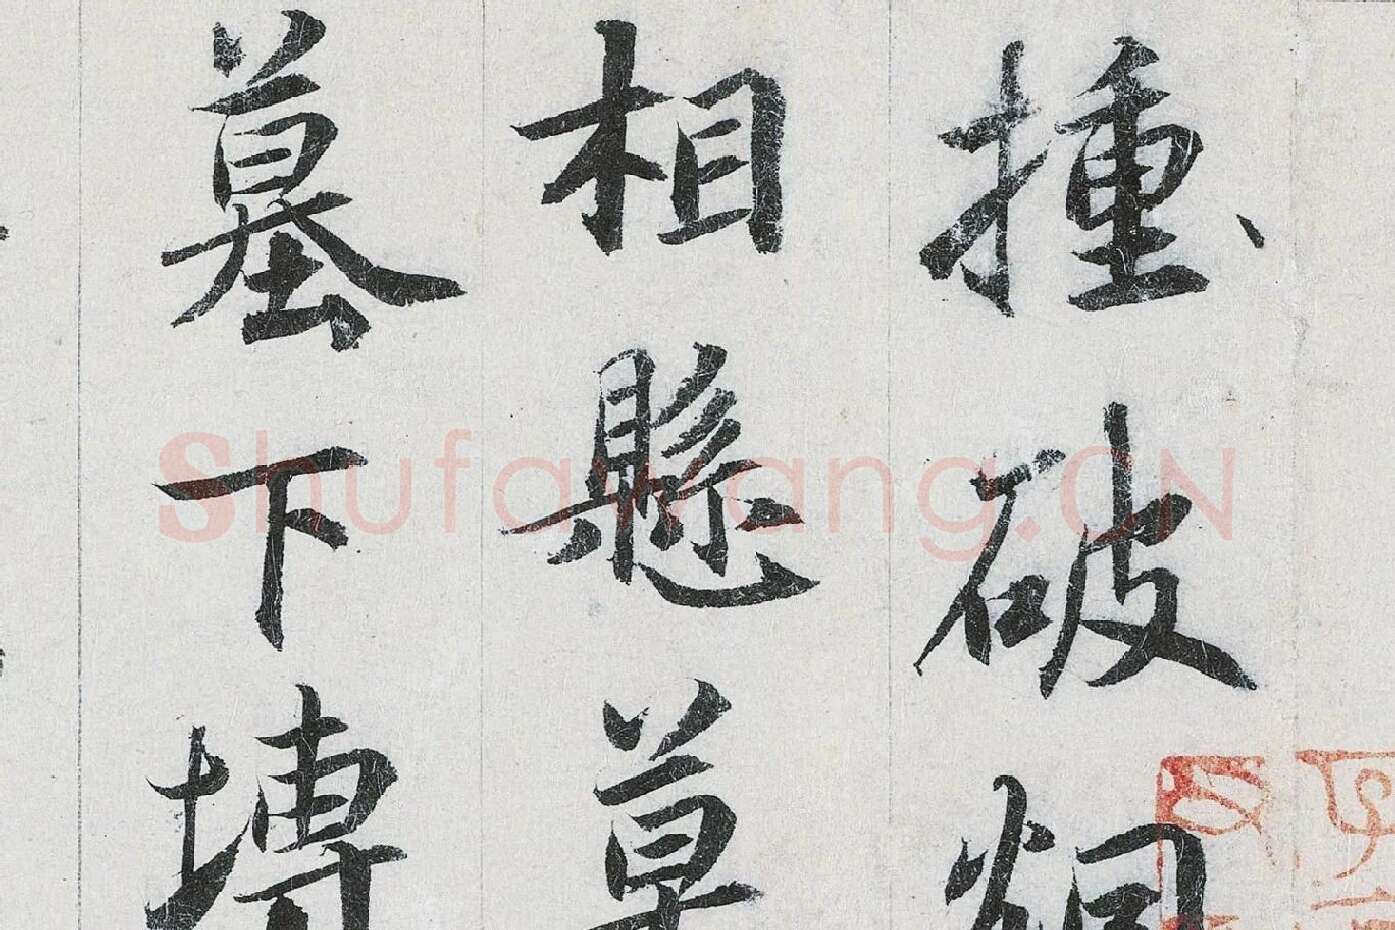 揰破
相懸草
墓下塼
Shufawang.CN